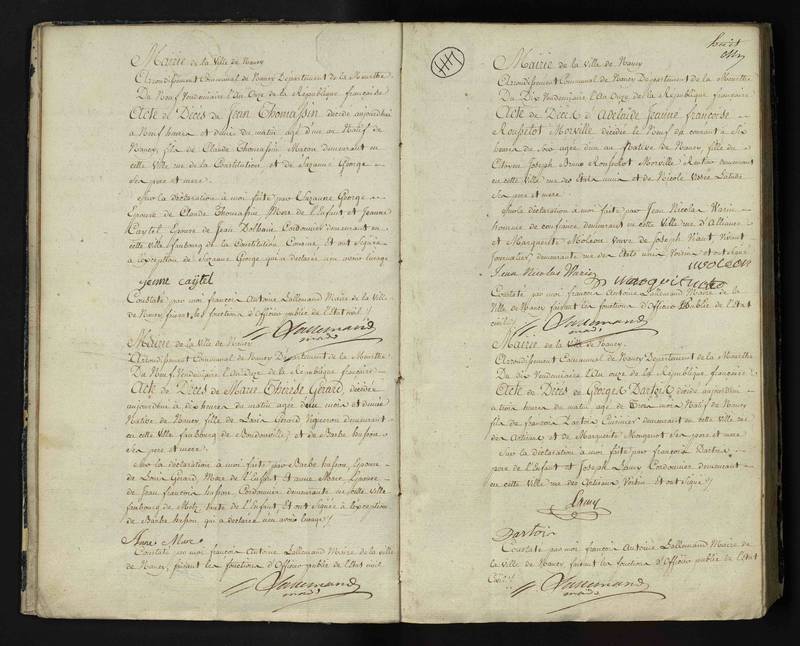 Mairie de la Ville de Nancy
Arrondissement Communal de Nancy Département de la Meurthe
Du Neuf Vendémiaire l'An Onze de la République française
Acte de Décès de Jean Thomassin décédé aujourdhui
a Neuf heures et demie du matin agé d'un an Natif de
Nancy, fils de Claude Thomassin Maçon demeurant en
cette Ville rue de la Constitution et de Suzanne George
Ses pere et mere
Sur la déclaration à moi faite par Suzanne George
Epouse de Claude Thomassin Mere de l'Enfant et Jeanne
Caytel Epouse de Jean Cordonnier demeurant en
cette ville faubourg de la Constitution Et ont Signé
à l'exception de Suzanne George qui a déclaré n'en avoir l'usage
jenne caÿtel
Constaté par moi françois Antoine Lallemand Maire de la Ville
de Nancy faisant les fonctions d'Officier public de l'Etat civil //
Lallemand
Mairie de la Ville de Nancy
Arrondissement Communal de Nancy Département de la Meurthe
Du Neuf Vendémiaire l'An Onze de la République française
Acte de Décès de Marie Thérèse Gérard, décédée
aujourdhui à dix heures du matin agée deux mois et demie
Native de Nancy fille de Louis Gérard Vigneron demeurant
en cette Ville faubourg de Boudonville et de Barbe husson
Ses pere et mere
Sur la déclaration à moi faite par Barbe husson, Epouse
de Louis Gérard, Mere de l'Enfant et anne Marc, Epouse
de Jean françois husson, Cordonnier demeurante en cette ville
faubourg de Metz tante de l'Enfant, Et ont Signée à l'exception
de Barbe husson, qui a déclaré n'en avoir l'usage //
Anne Marc
Constaté par moi françois Antoine Lallemand Maire de la ville
de Nancy, faisant les fonctions d'Officier public de l'Etat civil
Lallemand
huit
Mairie de la Ville de Nancy
Arrondissement Communal de Nancy Département de la Meurthe
Du Dix Vendémiaire l'An Onze de la République française
Acte de Décès d'Adelaide Jeanne françoise
Rouselot Morville décédée le Neuf du courant à Six
heures du Soir agée d'un an Native de Nancy fille du
Citoyen Joseph Bruno Rousselot Morville Rentier demeurant
en cette ville rue des et de Nicole
Ses pere et mere
Sur la déclaration à moi faite par Jean Nicolas Warin
homme de confiance, demeurant en cette Ville rue d'Alliance
et Marguerite Moleon Veuve de Joseph
Journalier, demeurante rue des Voisin et ont signé
Jean Nicolas Warin
moleon
Constaté par moi françois Antoine Lallemand Maire de la
Ville de Nancy faisant les fonctions d'Officier Public de l'Etat
civil //
Lallemand
Mairie de la Ville de Nancy
Arrondissement Communal de Nancy Département de la Meurthe
Du Dix Vendémiaire l'An onze de la République française
Acte de Décès de George Dartois décédé aujourdhui
a trois heures du matin agé de Trois mois Natif de Nancy
fils de françois Dartois Cuisinier demeurant en cette Ville rue
des Artisans et de Marguerite Mongenot Ses pere et mere
Sur la déclaration à moi faite par françois Dartois
pere de l'Enfant et Joseph Lamy Cordonnier demeurant
en cette Ville rue des Artisans Voisin Et ont signé //
Lamy
Dartois
Constaté par moi françois Antoine Lallemand Maire de
la Ville de Nancy, faisant les fonctions d'Officier public de l'Etat
Civil //
Lallemand